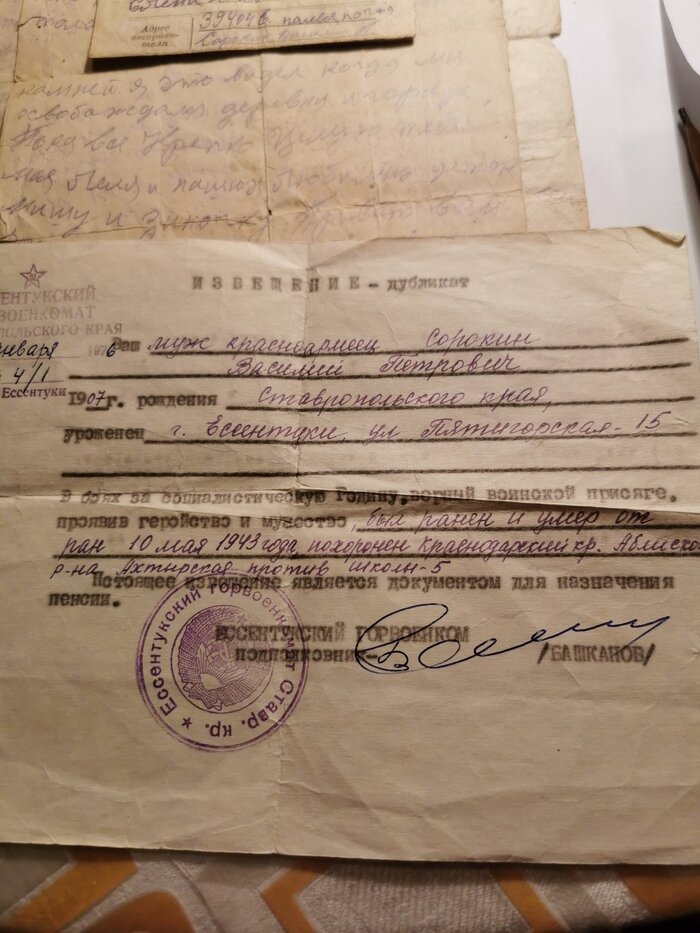 Адрес отправи-теля
39404Б полевая почта
Сорокин Василий П
камней я это видел когда мы
освобаждали деревни и города
Пока все Крепко Целую
и
ИЗВЕЩЕНИЕ - дубликат
ЕНТУКСКИЙ
ВОЕНКОМАТ
ПОЛЬСКОГО КРАЯ
нваря 1976
4/1
Ессентуки
Ваш муж красноармеец Сорокин
Василий Петрович
1907г. рождения Ставропольского края,
уроженец г. Ессентуки, ул Пятигорская-15
В боях за социалистическую Родину, верный воинской присяге,
проявив геройство и мужество, был ранен и умер от
ран 10 мая 1943 года, похоронен Краснодарский кр. Аблиско
р-на Ахтырская против школы-5
Нстоящее извещение является документом для назначения
пенсии.
ЕССЕНТУКСКИЙ ГОРВОЕНКОМ
подполковник /БАШКАНОВ/
Ессентукский горвоенкомат Ставр. кр.